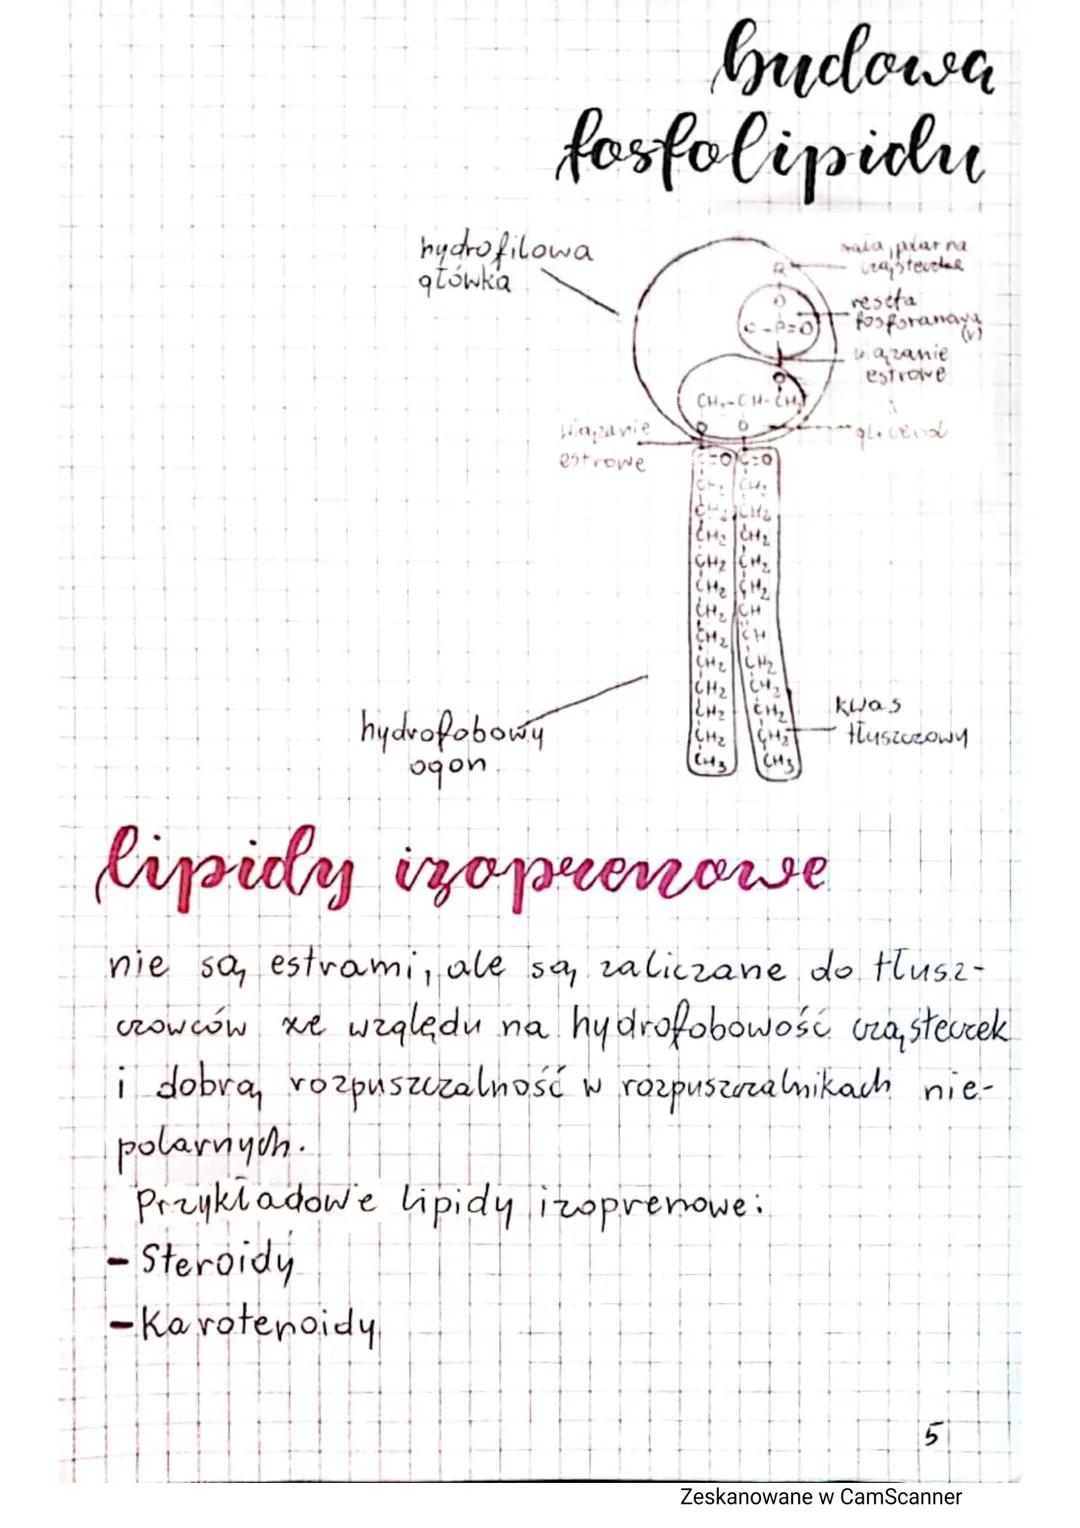 budowa
fosfolipidu
hydrofilowa
główka
mała, polarna
cząsteczka
R
reszta
fosforanowa
(V)
O
O-P=O
wiązanie
estrowe
O
CH₂-CH-CH₂
glicerol
O O
wiązanie
estrowe
C=O C=O
CH₂ CH₂
CH₂ CH₂
CH₂ CH₂
CH₂ CH₂
CH₂ CH₂
CH₂ CH
CH₂ CH
CH₂ CH₂
CH₂ CH₂
CH₂ CH₂
CH₂ CH₂
CH₃ CH₃
kwas
tłuszczowy
hydrofobowy
ogon
lipidy izoprenowe
nie są estrami, ale są zaliczane do tłusz-
czowców ze względu na hydrofobowość cząsteczek
i dobrą rozpuszczalność w rozpuszczalnikach nie-
polarnych.
Przykładowe lipidy izoprenowe:
- Steroidy
- Karotenoidy
5
Zeskanowane w CamScanner